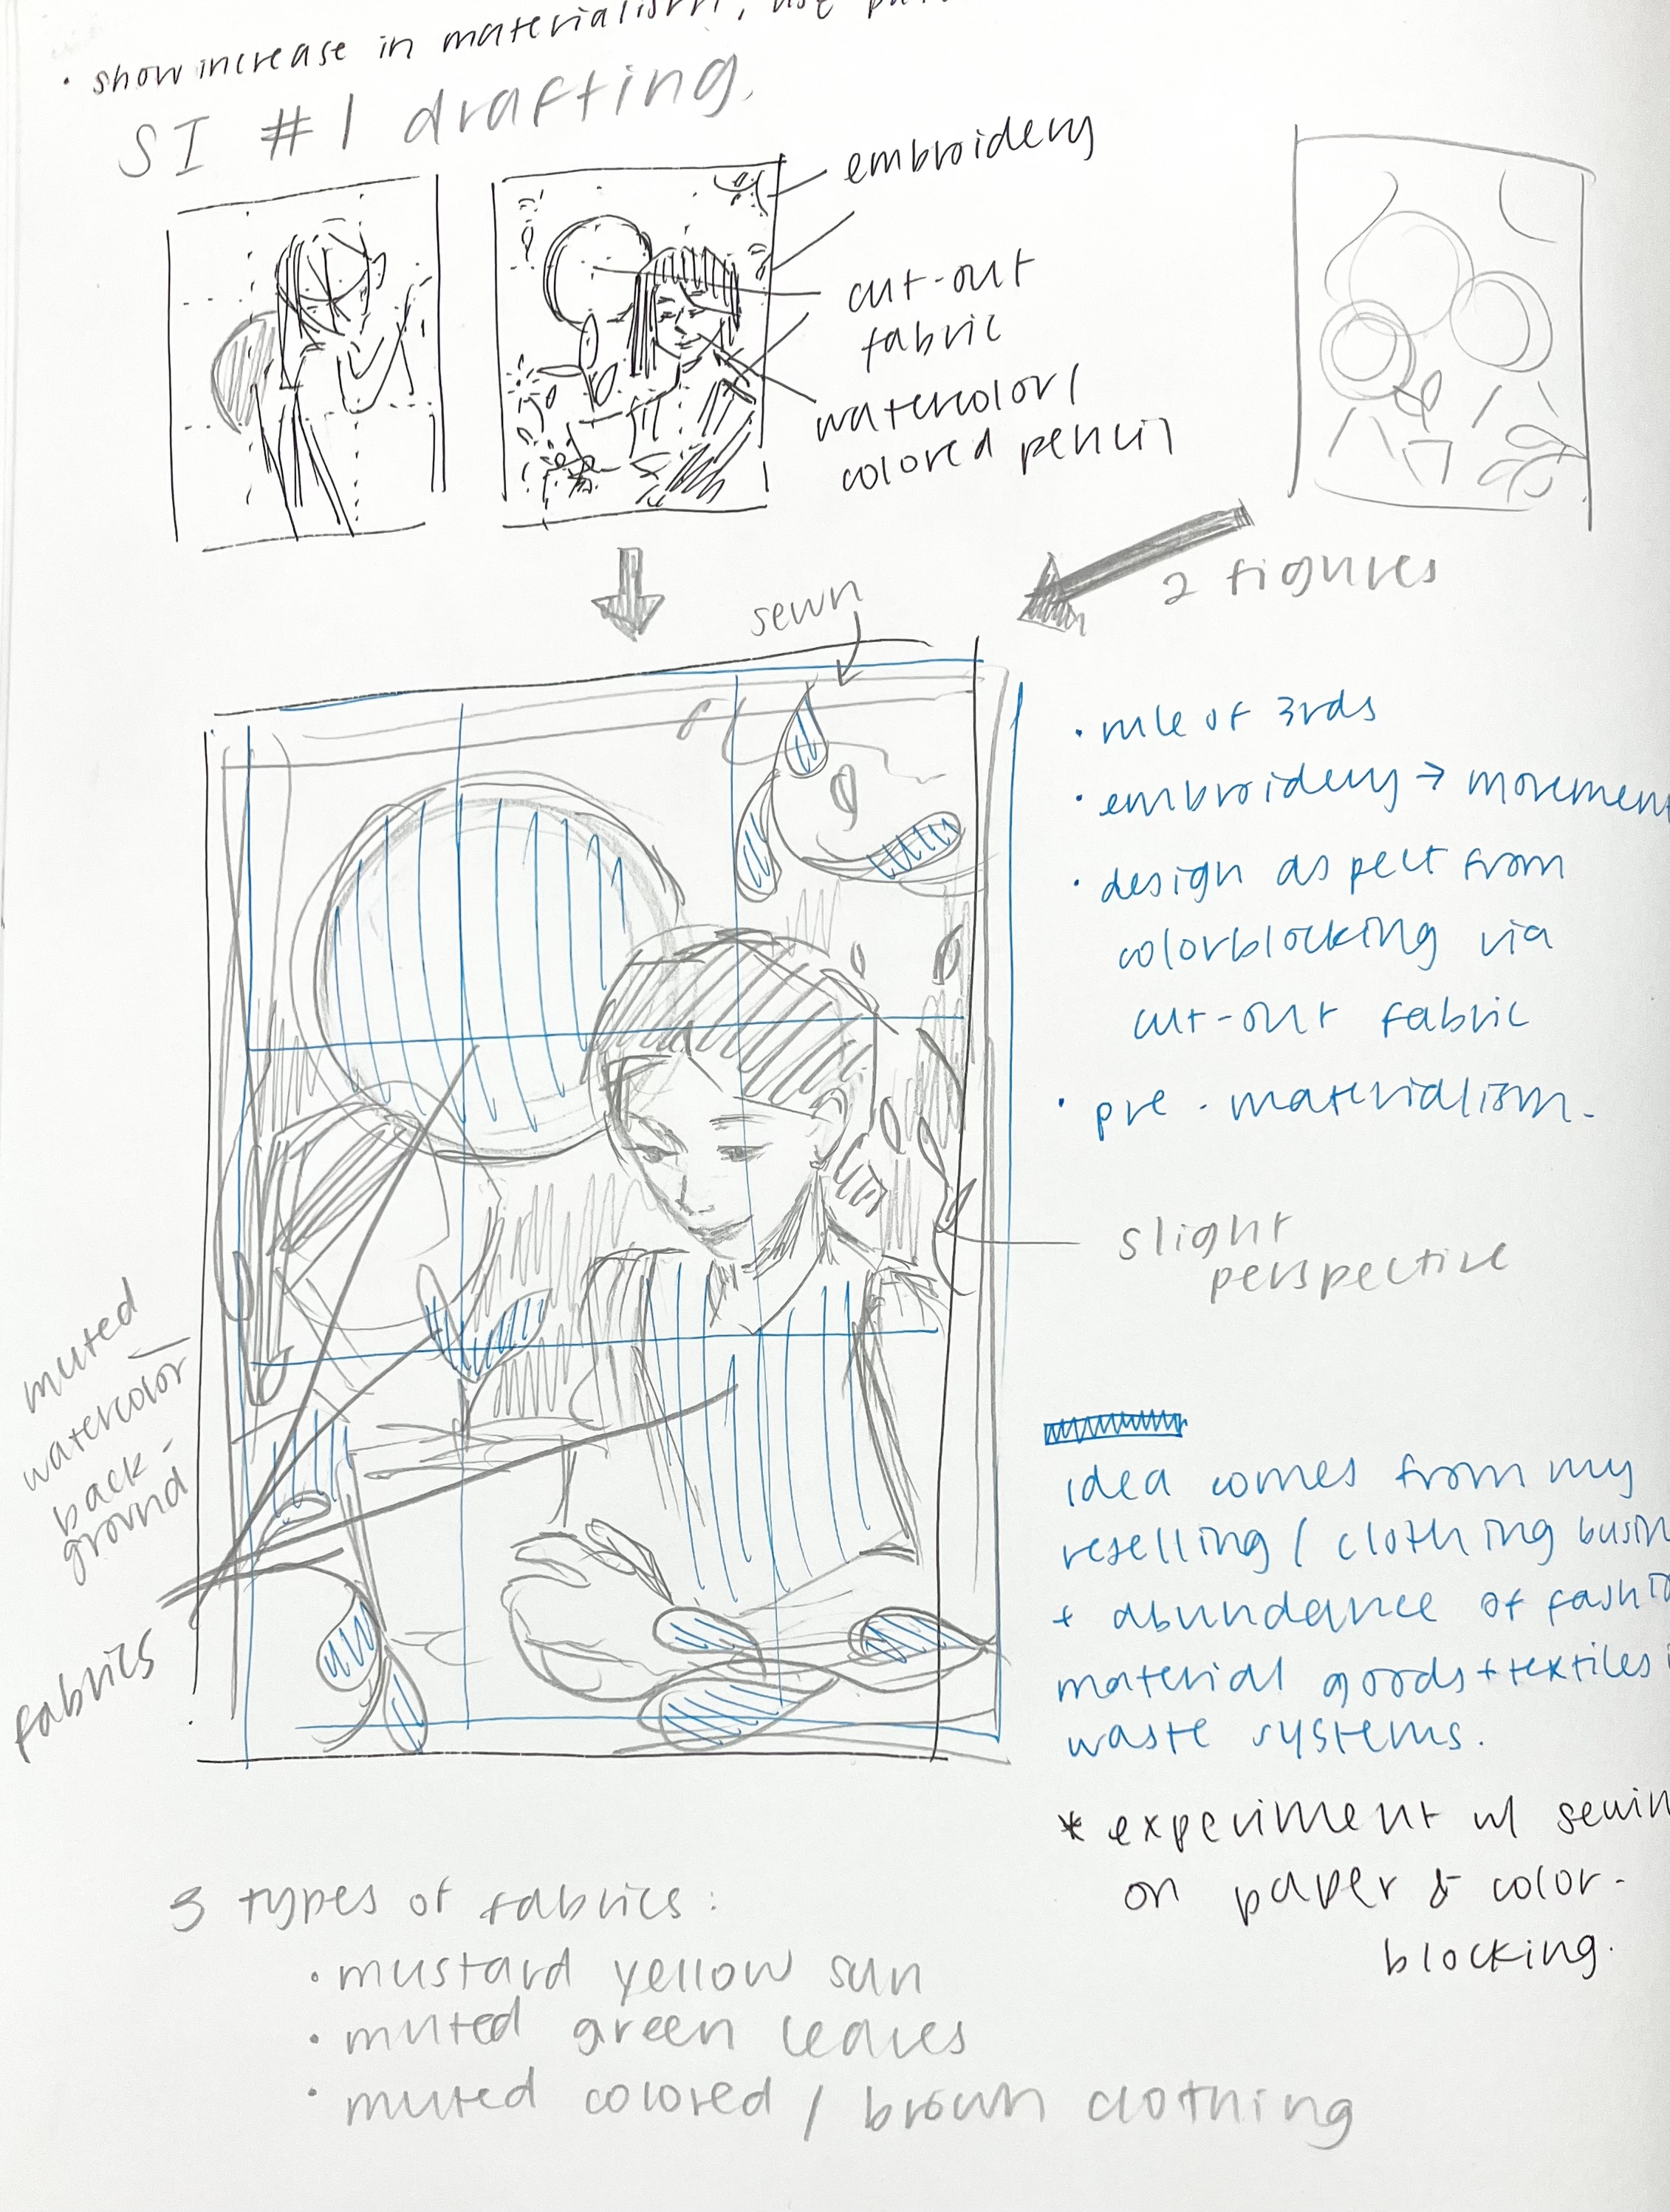 • show increase in materialism, use
SI #1 drafting.
embroidery
cut-out
fabric
watercolor/
colored pencil
2 figures
sewn
• rule of 3rds
• embroidery → movement
• design aspect from
colorblocking via
cut-out fabric
• pre-materialism.
slight
perspective
muted
watercolor
back-
ground
fabrics
idea comes from my
reselling / clothing busin
+ abundance of fashio
material goods + textiles i
waste systems.
* experiment w/ sewin
on paper & color-
blocking.
3 types of fabrics:
• mustard yellow sun
• muted green leaves
• muted colored / brown clothing